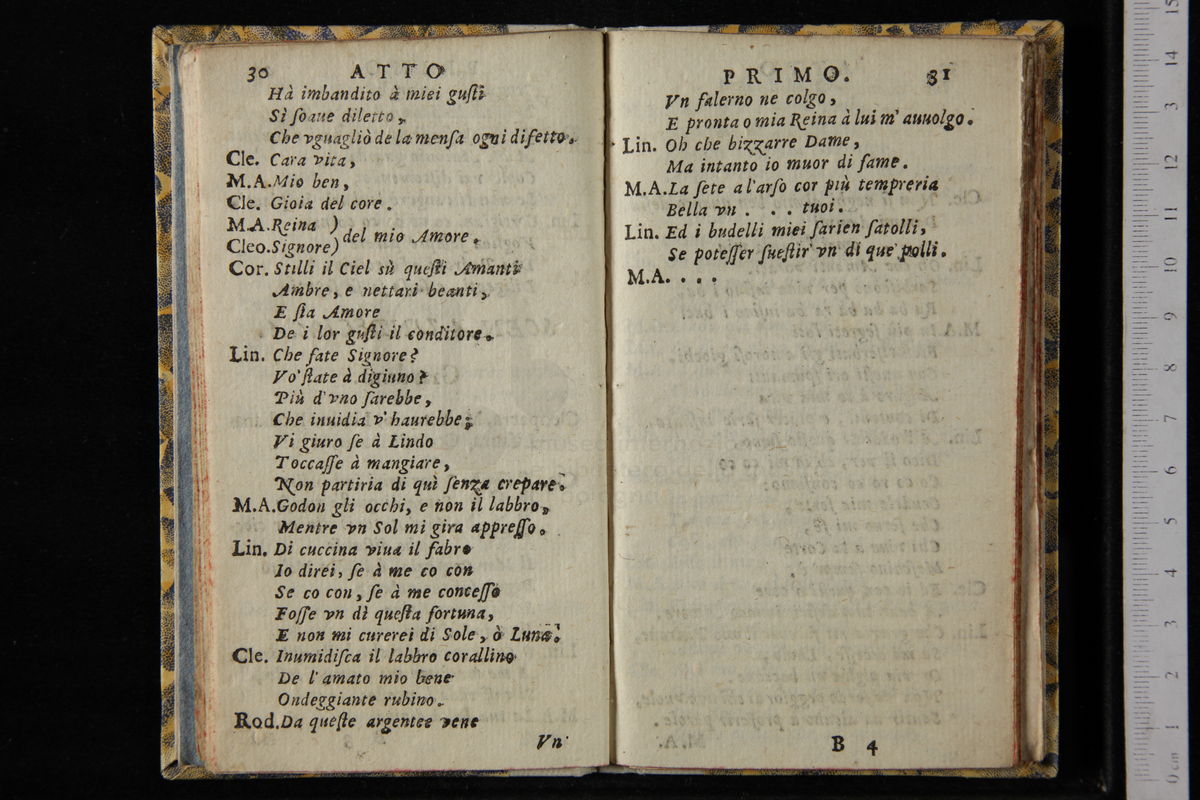 30 ATTO
Hà imbandito à miei gusti
Sì soaue diletto,
Che vguagliò de la mensa ogni difetto.
Cle. Cara vita,
M.A. Mio ben,
Cle. Gioia del core.
M.A. Reina )
Cleo. Signore) del mio Amore.
Cor. Stilli il Ciel sù questi Amanti
Ambre, e nettari beanti,
E sia Amore
De i lor gusti il conditore.
Lin. Che fate Signore?
Vo' state à digiuno?
Più d'vno sarebbe,
Che inuidia v'haurebbe;
Vi giuro se à Lindo
Toccasse à mangiare,
Non partiria di quì senza crepare.
M.A. Godon gli occhi, e non il labbro,
Mentre vn Sol mi gira appresso.
Lin. Di cuccina viua il fabro
Io direi, se à me co con
Se co con, se à me concesso
Fosse vn dì questa fortuna,
E non mi curerei di Sole, ò Luna.
Cle. Inumidisca il labbro corallino
De l'amato mio bene
Ondeggiante rubino.
Rod. Da queste argentee vene
Vn
PRIMO. 31
Vn falerno ne colgo,
E pronta o mia Reina à lui m'auuolgo.
Lin. Oh che bizzarre Dame,
Ma intanto io muor di fame.
M.A. La sete a l'arso cor più tempreria
Bella vn . . . tuoi.
Lin. Ed i budelli miei sarien satolli,
Se potesser suestir vn di que' polli.
M.A. . . .
B 4
0 cm 1 2 3 4 5 6 7 8 9 10 11 12 13 14 15